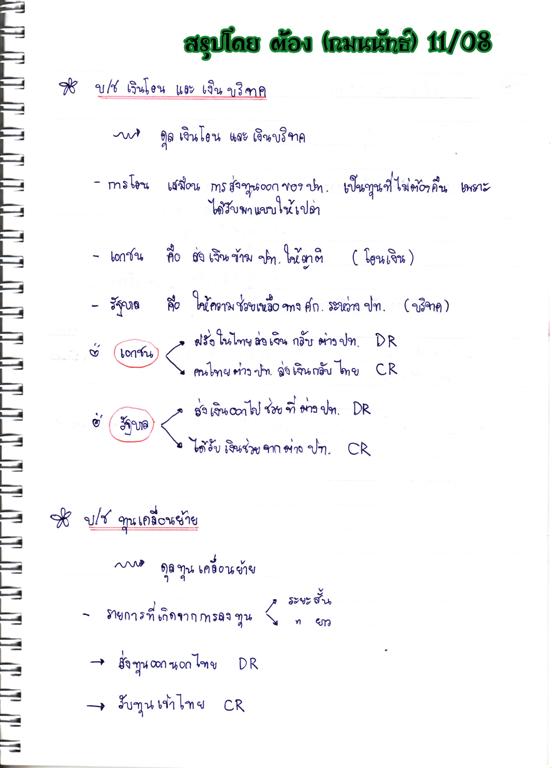 สรุปโดย ต้อง (กมนนัทธ์) 11/08
บ/ช เงินโอน และ เงินบริจาค
ดุลเงินโอน และ เงินบริจาค
- การโอน เสมือน การส่งทุนออกของ ปท. เป็นทุนที่ไม่ต้องคืน เพราะ
ได้รับมาแบบให้เปล่า
- เอกชน คือ ส่งเงินข้าม ปท. ให้ญาติ (โอนเงิน)
- รัฐบาล คือ ให้ความช่วยเหลือทาง ศก. ระหว่าง ปท. (บริจาค)
เอกชน
ฝรั่งในไทยส่งเงินกลับต่างปท. DR
คนไทยต่างปท. ส่งเงินกลับไทย CR
รัฐบาล
ส่งเงินออกไปช่วยที่ต่างปท. DR
ได้รับเงินช่วยจากต่างปท. CR
บ/ช ทุนเคลื่อนย้าย
ดุลทุนเคลื่อนย้าย
- รายการที่เกิดจากการลงทุน
ระยะสั้น
" ยาว
→ ส่งทุนออกนอกไทย DR
→ รับทุนเข้าไทย CR